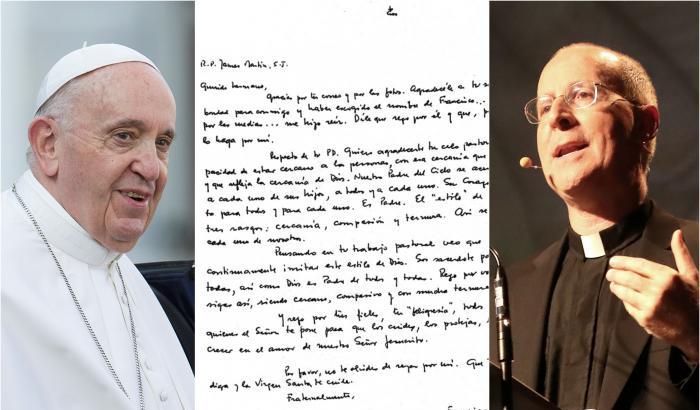 R.P. James Martin, S.J.
Querido hermano,
Gracias por tu correo y por las fotos. Agradécele a tu
bondad para conmigo y haber escogido el nombre de Francisco...
por las medias... me hizo reír. Dile que rezo por él y que,
lo haga por mí.
Respecto de tu PD. Quiero agradecerte tu celo
pacidad de estar cercano a las personas, con esa cercanía que
y que refleja la cercanía de Dios. Nuestro Padre del Cielo se
a cada uno de sus hijos, a todos y a cada uno. Su
to para todos y para cada uno. Es Padre. El "estilo" de
tres rasgos: cercanía, compasión y ternura. Así se
cada uno de nosotros.
Pensando en tu trabajo pastoral veo que
continuamente este estilo de Dios. Sos sacerdote
todas, así como Dios es Padre de todos y todas. Rezo por
sigas así, siendo cercano, compasivo y con mucha
Y rezo por tus fieles, tu "feligresía", todos
quienes el Señor te pone para que los cuides, los protejas,
crecer en el amor de nuestro Señor Jesucristo.
Por favor, no te olvides de rezar por mí. Que
diga y la Virgen Santa te cuide.
Fraternalmente,